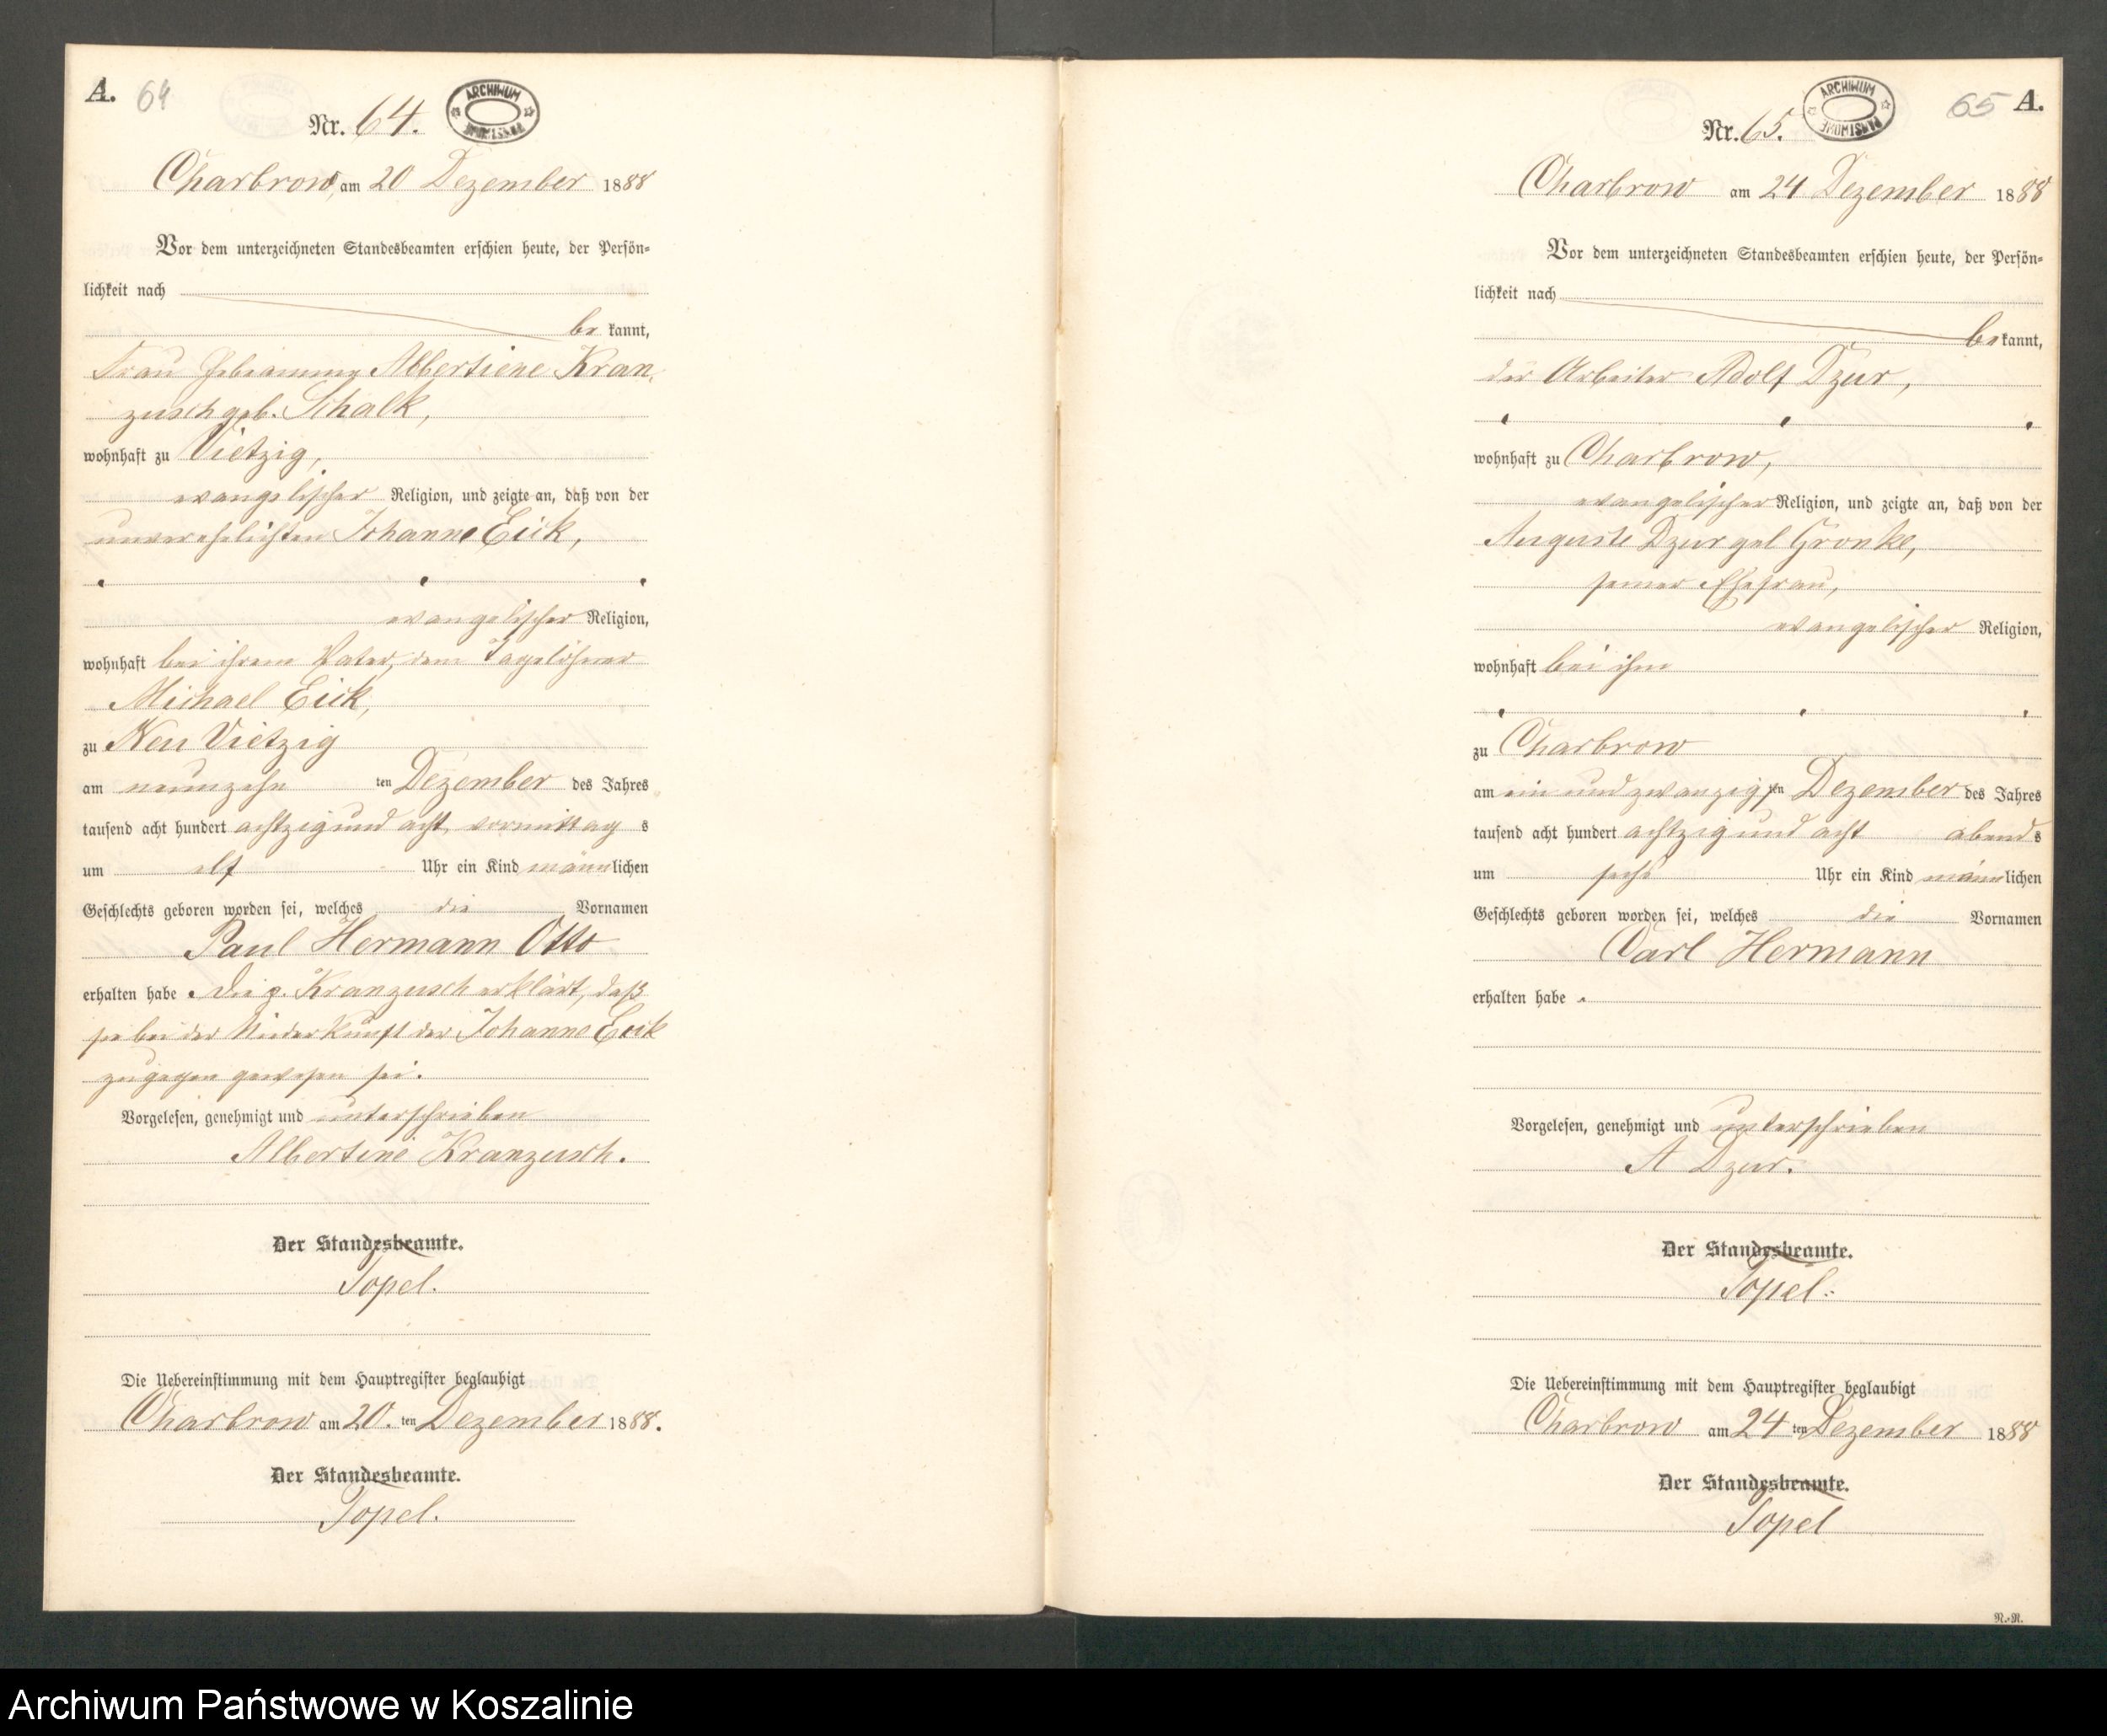 A. 64
Nr. 64.
ARCHIWUM
Charbrow, am 20 Dezember 1888
Vor dem unterzeichneten Standesbeamten erschien heute, der Persön-
lichkeit nach
be kannt,
Frau Hebamme Albertiene Kran-
zusch geb. Schalk,
wohnhaft zu Vietzig,
evangelischer Religion, und zeigte an, daß von der
unverehelichten Johanne Eick,
evangelischer Religion,
wohnhaft bei ihrem Vater, dem Tagelöhner
Michael Eick,
zu Neu Vietzig
am neunzehn ten Dezember des Jahres
tausend acht hundert achtzig und acht, vormittag s
um elf Uhr ein Kind männlichen
Geschlechts geboren worden sei, welches die Vornamen
Paul Hermann Otto
erhalten habe. Die p. Kranzusch erklärt, daß
sie bei der Niederkunft der Johanne Eick
zugegen gewesen sei.
Vorgelesen, genehmigt und unterschrieben
Albertine Kranzusch.
Der Standesbeamte.
Topel.
Die Uebereinstimmung mit dem Hauptregister beglaubigt
Charbrow am 20. ten Dezember 1888.
Der Standesbeamte.
Topel.
65 A.
Nr. 65.
ARCHIWUM PAŃSTWOWE
Charbrow am 24 Dezember 1888
Vor dem unterzeichneten Standesbeamten erschien heute, der Persön-
lichkeit nach
bekannt,
der Arbeiter Adolf Dzur,
wohnhaft zu Charbrow,
evangelischer Religion, und zeigte an, daß von der
Auguste Dzur geb Gronke,
seiner Ehefrau,
evangelischer Religion,
wohnhaft bei ihm
zu Charbrow
am ein und zwanzigsten Dezember des Jahres
tausend acht hundert achtzig und acht abends
um sechs Uhr ein Kind männlichen
Geschlechts geboren worden sei, welches die Vornamen
Carl Hermann
erhalten habe.
Vorgelesen, genehmigt und unterschrieben
A Dzur.
Der Standesbeamte.
Topel.
Die Uebereinstimmung mit dem Hauptregister beglaubigt
Charbrow am 24 ten Dezember 1888
Der Standesbeamte.
Topel
N.-N.
Archiwum Państwowe w Koszalinie